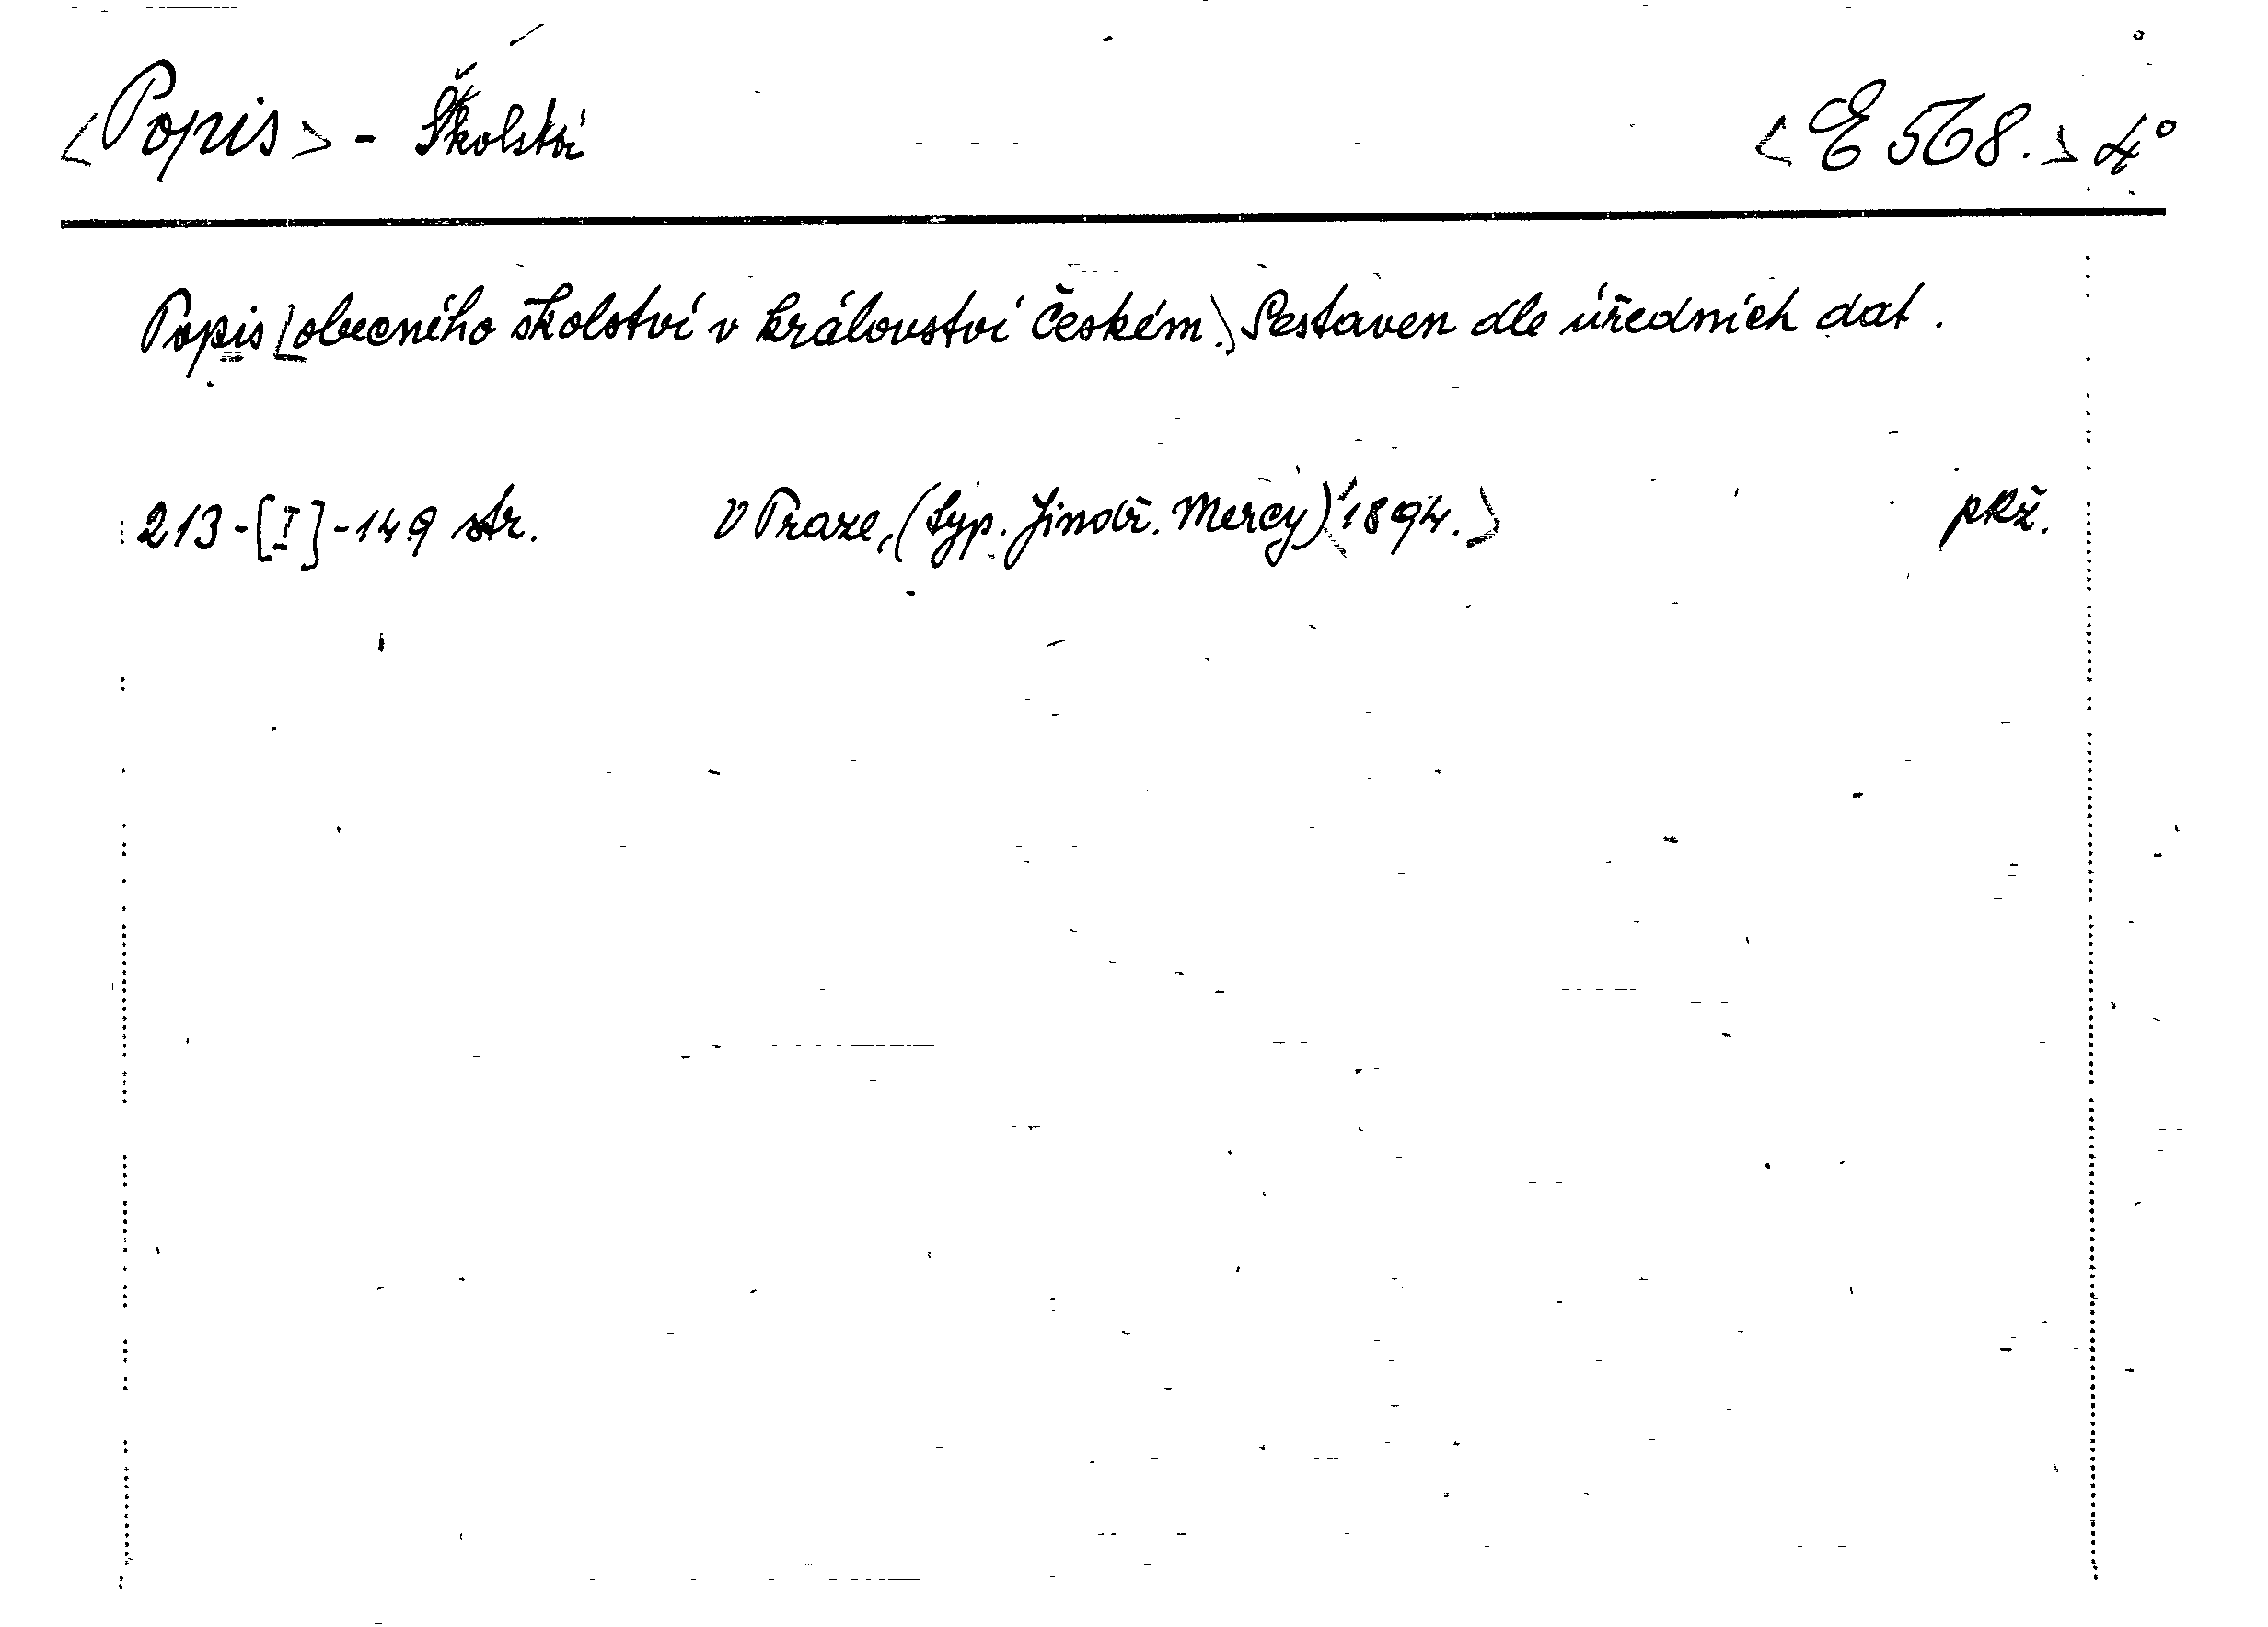 <Popis> - Školství <E 568.> 4°
Popis [obecného školství v království Českém.] Sestaven dle úředních dat.
213-[I]-149 str. V Praze, (Typ. Jindř. Mercy) <1894.> pkž.